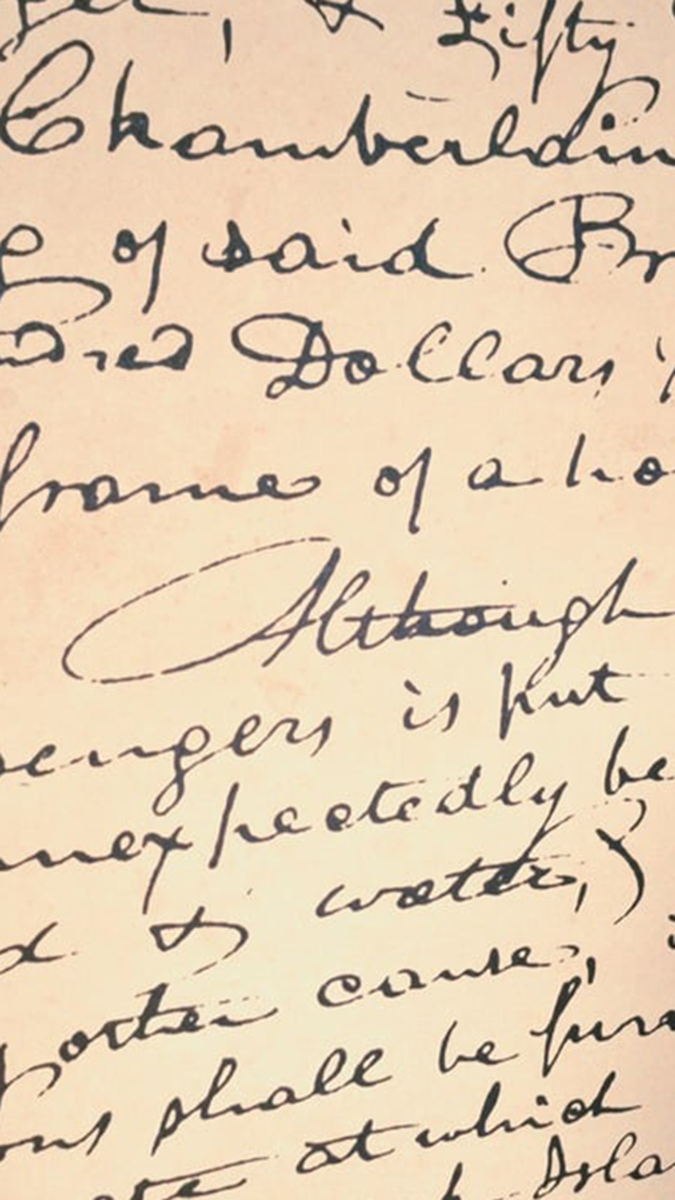 , & Fifty
Chamberlain
of said Br
dred Dollars
frame of a ho
Although
sengers is put
unexpectedly be
d & water,)
other cause,
ons shall be furn
ate at which
Isla